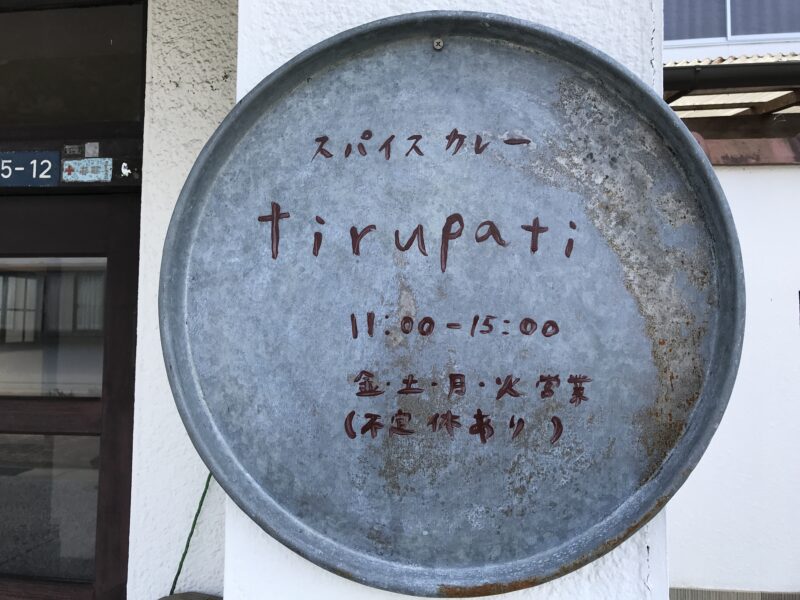 スパイスカレー
tirupati
11:00-15:00
金・土・月・火営業
(不定休あり)
5-12